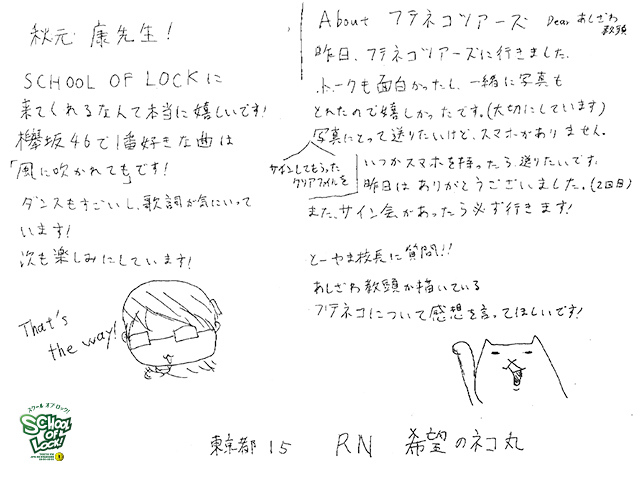 秋元 康先生!
SCHOOL OF LOCKに
来てくれるなんて本当に嬉しいです!
欅坂46で1番好きな曲は
「風に吹かれても」です!
ダンスもすごいし、歌詞が気にいって
います!
次も楽しみにしています!
That's
the way!
About フテネコツアーズ Dear あしざわ
教頭
昨日、フテネコツアーズに行きました。
トークも面白かったし、一緒に写真も
とれたので嬉しかったです。(大切にしています)
写真にとって送りたいけど、スマホがありません。
サインしてもらった
クリアファイルを
いつかスマホを持ったら、送りたいです。
昨日はありがとうございました。(2回目)
また、サイン会があったら必ず行きます!
とーやま校長に質問!!
あしざわ教頭が描いている
フテネコについて感想を言ってほしいです!
スクール オブ ロック!
SCHOOL
OF
LOCK!
東京都 15 RN 希望のネコ丸